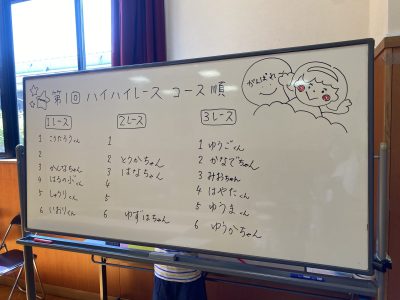 第1回 ハイハイレース コース順
がんばれ
1レース
1 こうたろうくん
2
3 かんなちゃん
4 はるのぶくん
5 しゅうりくん
6 いおりくん
2レース
1
2 とうかちゃん
3 はなちゃん
4
5
6 ゆずはちゃん
3レース
1 ゆうごくん
2 かなでちゃん
3 みおちゃん
4 はやたくん
5 ゆうまくん
6 ゆうかちゃん